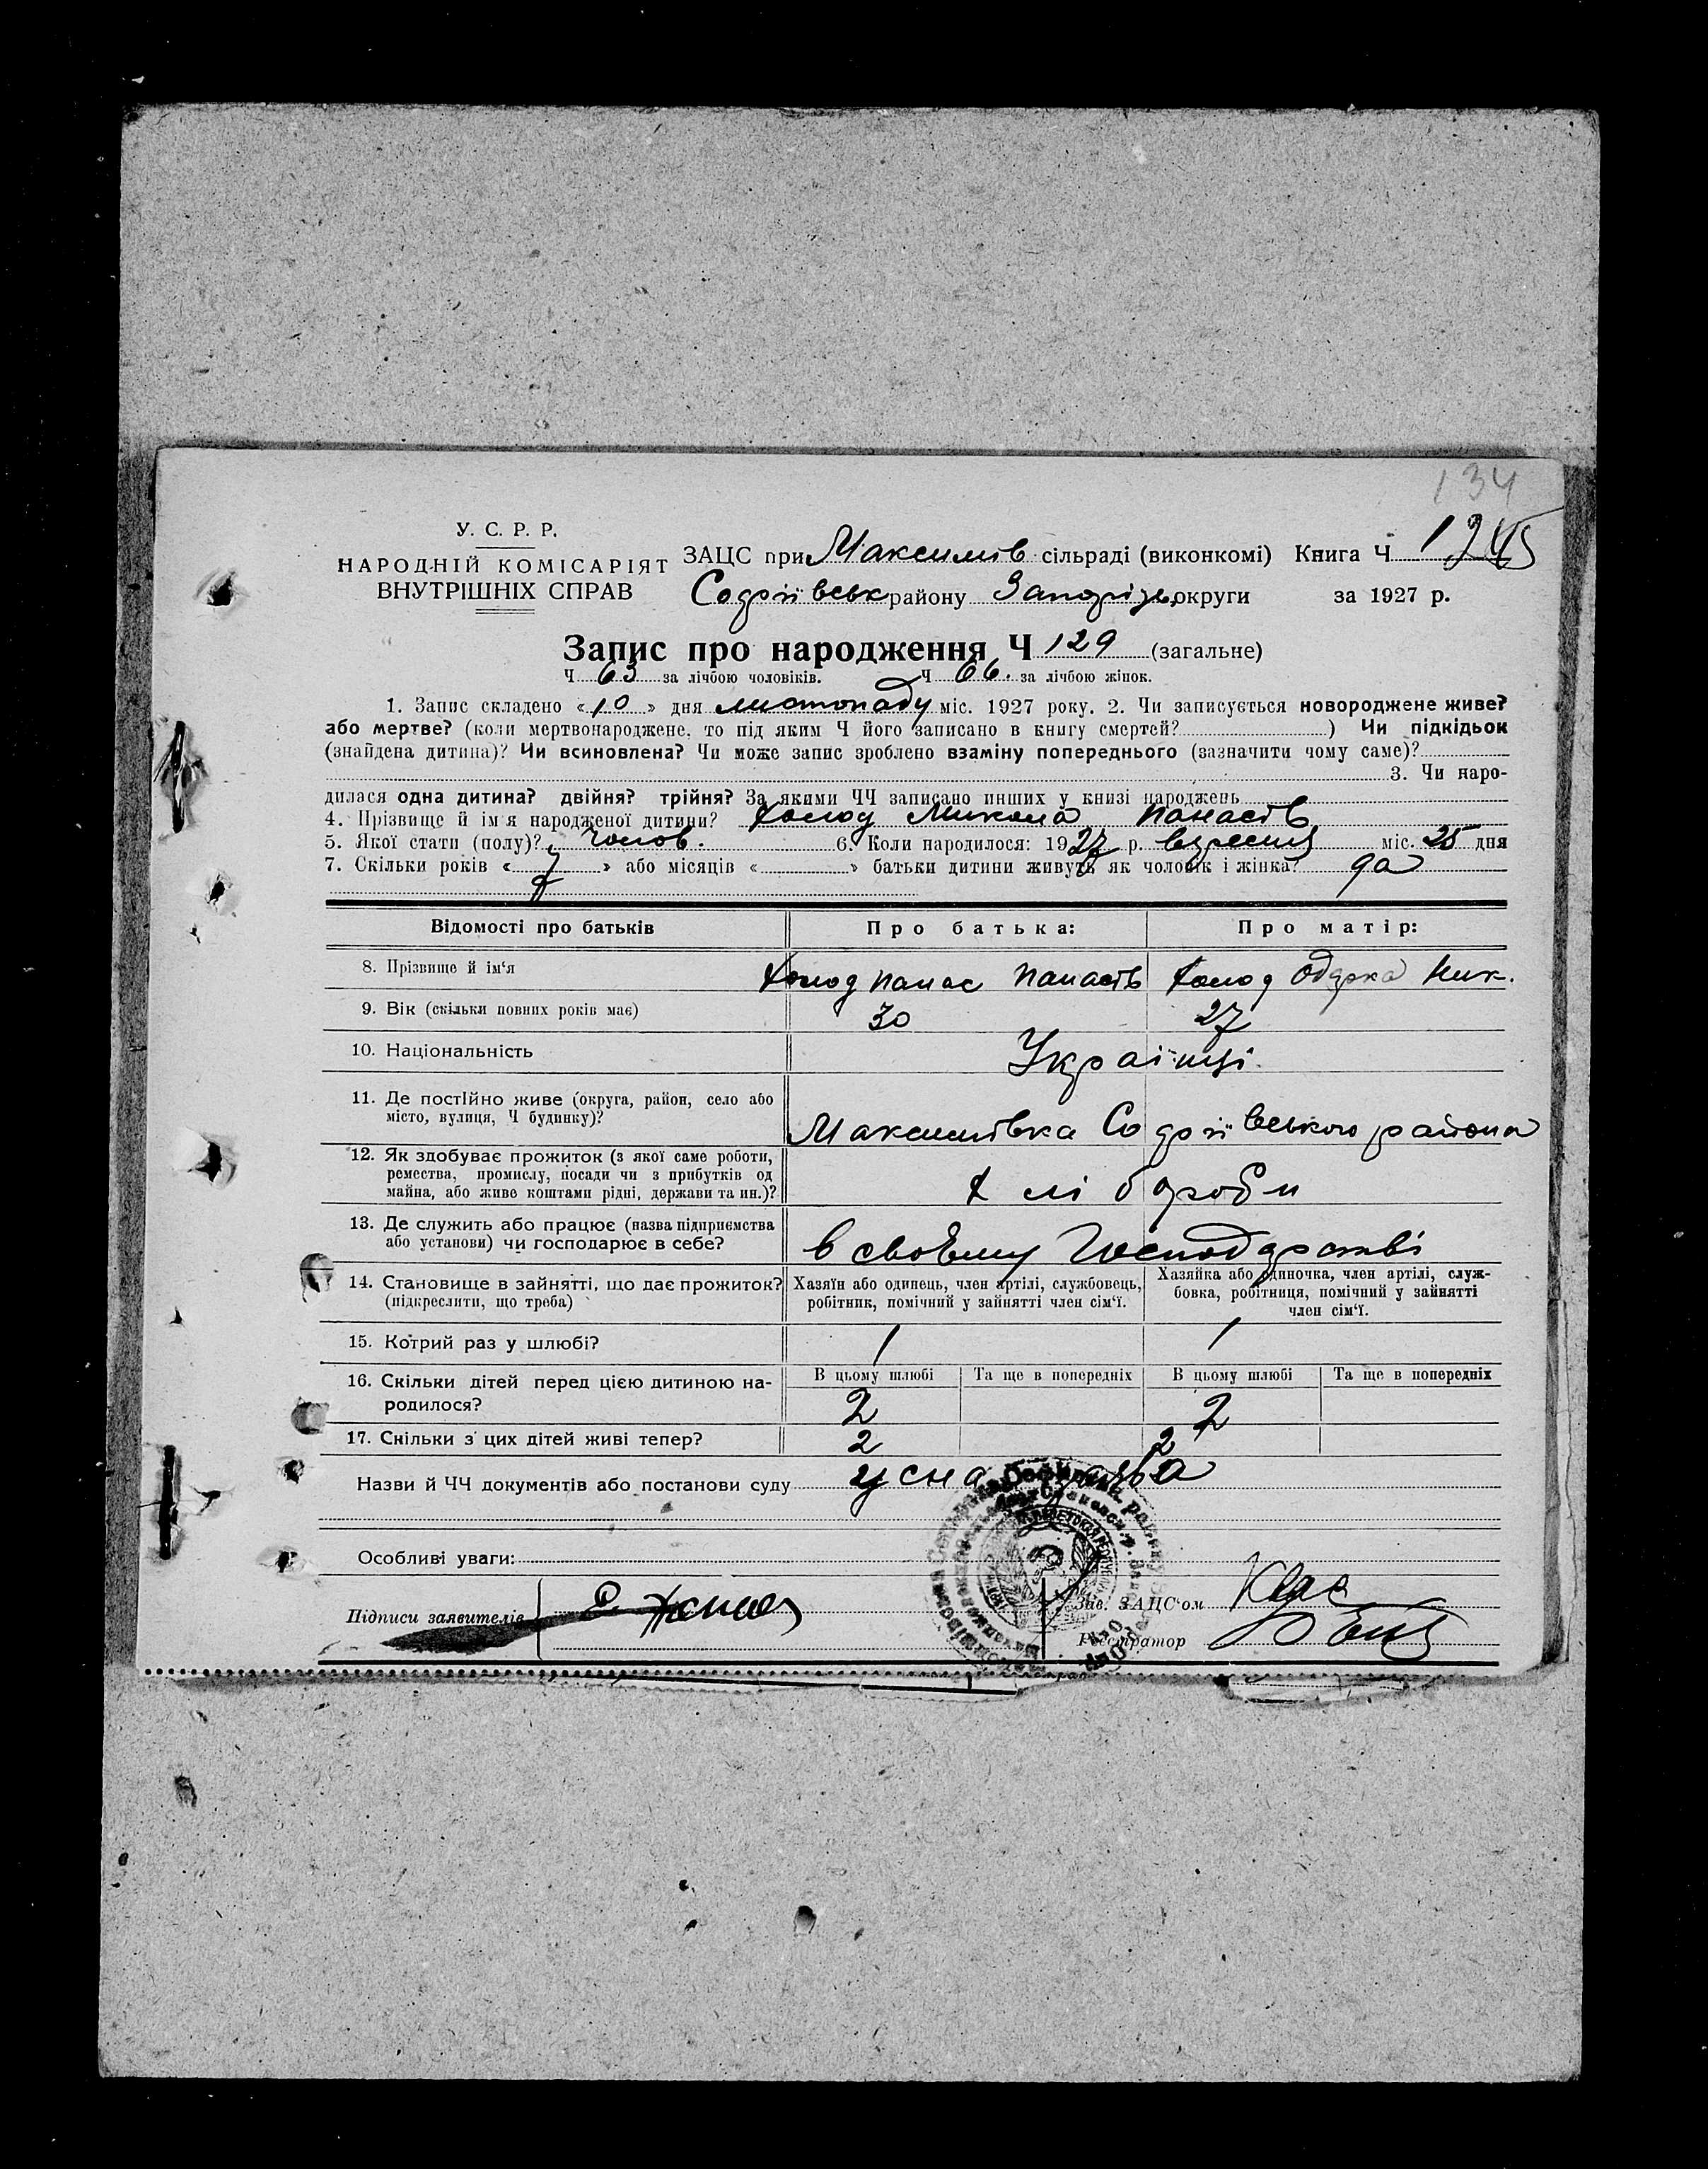 134
У. С. Р. Р.
НАРОДНІЙ КОМІСАРІЯТ
ВНУТРІШНІХ СПРАВ
ЗАЦС при Максимів сільраді (виконкомі) Книга Ч 1
Софіївськ району Запорізь. округи за 1927 р.
Запис про народження Ч 129 (загальне)
Ч 63 за лічбою чоловіків. Ч 66. за лічбою жінок.
1. Запис складено «10» дня листопаду міс. 1927 року. 2. Чи записується новороджене живе?
або мертве? (коли мертвонароджене, то під яким Ч його записано в книгу смертей? ) Чи підкідьок
(знайдена дитина)? Чи всиновлена? Чи може запис зроблено взаміну попереднього (зазначити чому саме)?
3. Чи наро-
дилася одна дитина? двійня? трійня? За якими ЧЧ записано инших у книзі народжень
4. Прізвище й ім'я народженої дитини? Холод Микола Панасів
5. Якої стати (полу)? чолов. 6. Коли народилося: 1927 р. вересня міс. 25 дня
7. Скільки років «7» або місяців « » батьки дитини живуть як чоловік і жінка? да
Відомості про батьків Про батька: Про матір:
8. Прізвище й ім'я Холод Панас Панасів Холод Одарка Ник.
9. Вік (скільки повних років має) 30 27
10. Національність Україиці.
11. Де постійно живе (округа, район, село або
місто, вулиця, Ч будинку)?
Максимівка Софіївського района
12. Як здобуває прожиток (з якої саме роботи,
ремества, промислу, посади чи з прибутків од
майна, або живе коштами рідні, держави та ин.)?
Хлібороби
13. Де служить або працює (назва підприємства
або установи) чи господарює в себе?
в своєму Господарстві
14. Становище в зайнятті, що дає прожиток?
(підкреслити, що треба)
Хазяїн або одинець, член артілі, службовець,
робітник, помічний у зайнятті член сім'ї.
Хазяйка або одиночка, член артілі, служ-
бовка, робітниця, помічний у зайнятті
член сім'ї.
15. Котрий раз у шлюбі? 1 1
В цьому шлюбі Та ще в попередніх В цьому шлюбі Та ще в попередніх
16. Скільки дітей перед цією дитиною на-
родилося? 2 2
17. Скільки з цих дітей живі тепер? 2 2
Назви й ЧЧ документів або постанови суду усна заява
Особливі уваги:
Підписи заявителів
Зав. ЗАЦС'ом
Реєстратор